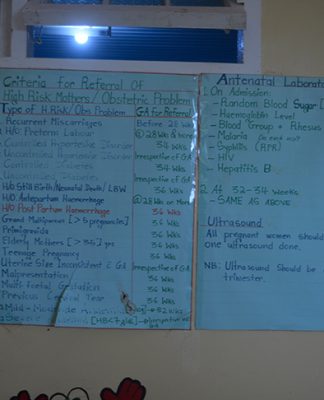 Criteria for Referral Of
High Risk Mothers / Obstetric Problem
Type of H.Risk/Obs Problem GA for Referral
Recurrent Miscarriages Before 28 wk
H/o: Preterm Labour @ 28 wk &
Controlled Hypertensive Disorder 34 wks
Uncontrolled Hypertensive Disorder Irrespective of GA
Controlled Diabetes 34 wks
Uncontrolled Diabetes Irrespective of GA
H/o Still Birth/Neonatal Death/LBW 36 wks
H/O. Antepartum Haemorrhage @ 28 wk or More
H/O Post Partum Haemorrhage 36 wks
Grand Multiparous [>5 pregnancies] 36 wks
Primigravida 36 wks
Elderly Mothers [>35] yrs 36 wks
Teenage Pregnancy 36 wks
Uterine Size Inconsistent & GA Irrespective of GA
Malpresentation 36 wks
Multifoetal Gestation 36 wks
Previous Scar 36 wks
Mild - Moderate 32 wks
[HB<7 Irrespective
Antenatal Laborat
1. On Admission:
- Random Blood Sugar L
- Haemoglobin Level
- Blood Group + Rhesus
- Malaria
- Syphilis (RPR)
- HIV
- Hepatitis B
2. At 32-34 weeks
- SAME AS ABOVE
Ultrasound
All pregnant women should
one ultrasound done.
NB: Ultrasound should be
trimester.